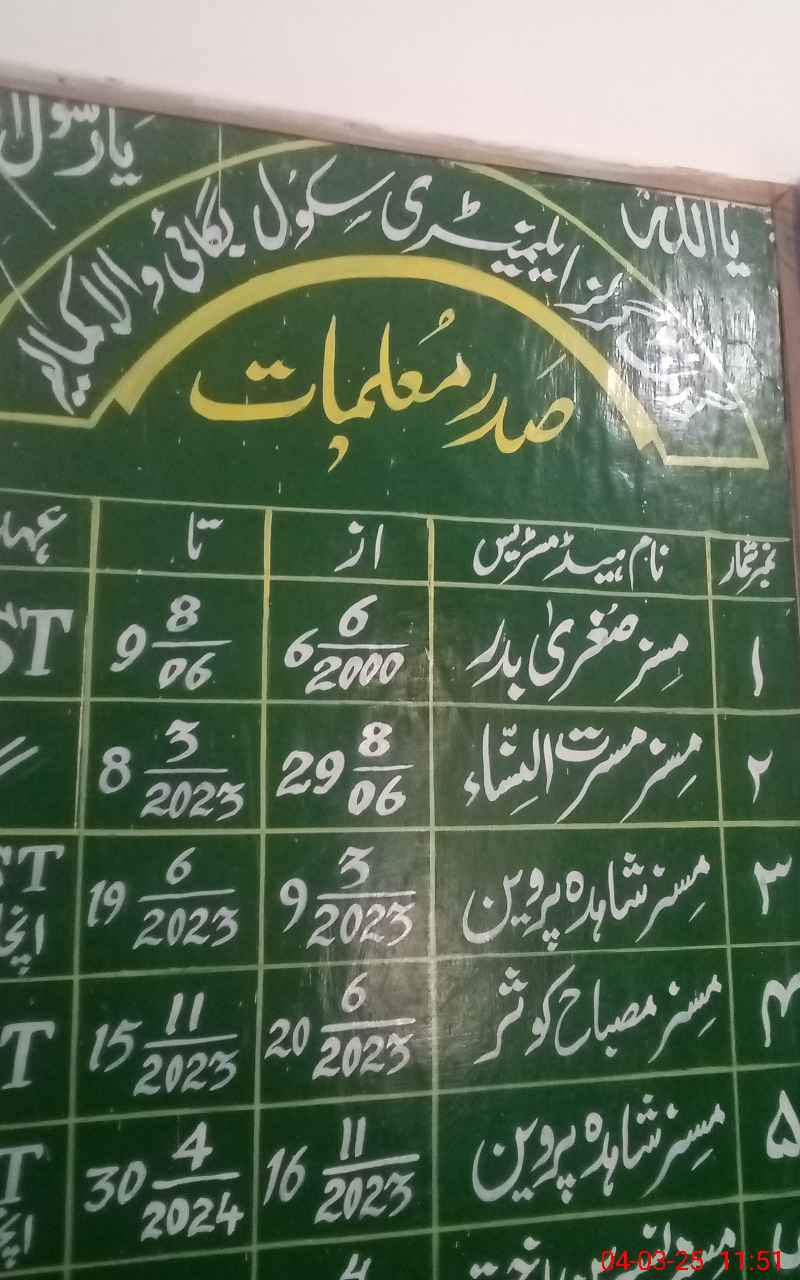 یا اللہ یا رسول
گرلز ایلیمنٹری سکول بگائی والا
صدر معلمات
نمبر شمار نام ہیڈ مسٹریس از تا
۱ مسز صغریٰ بدر 6 6/2000 9 8/06 ST
۲ مسز مسرت النساء 29 8/06 8 3/2023
۳ مسز شاہدہ پروین 9 3/2023 19 6/2023 ST
۴ مسز مصباح کوثر 20 6/2023 15 11/2023 T
۵ مسز شاہدہ پروین 16 11/2023 30 4/2024 T
مسز
04-03-25 11:51